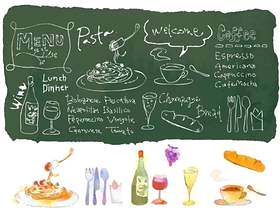 MENU
Pasta
welcome
Coffee
Espresso
Americano
Cappuccino
Wine
Lunch
Dinner
Champagne
Bread
Bolognese Pescatora
Peperoncino Vongole
Genovese Tomato